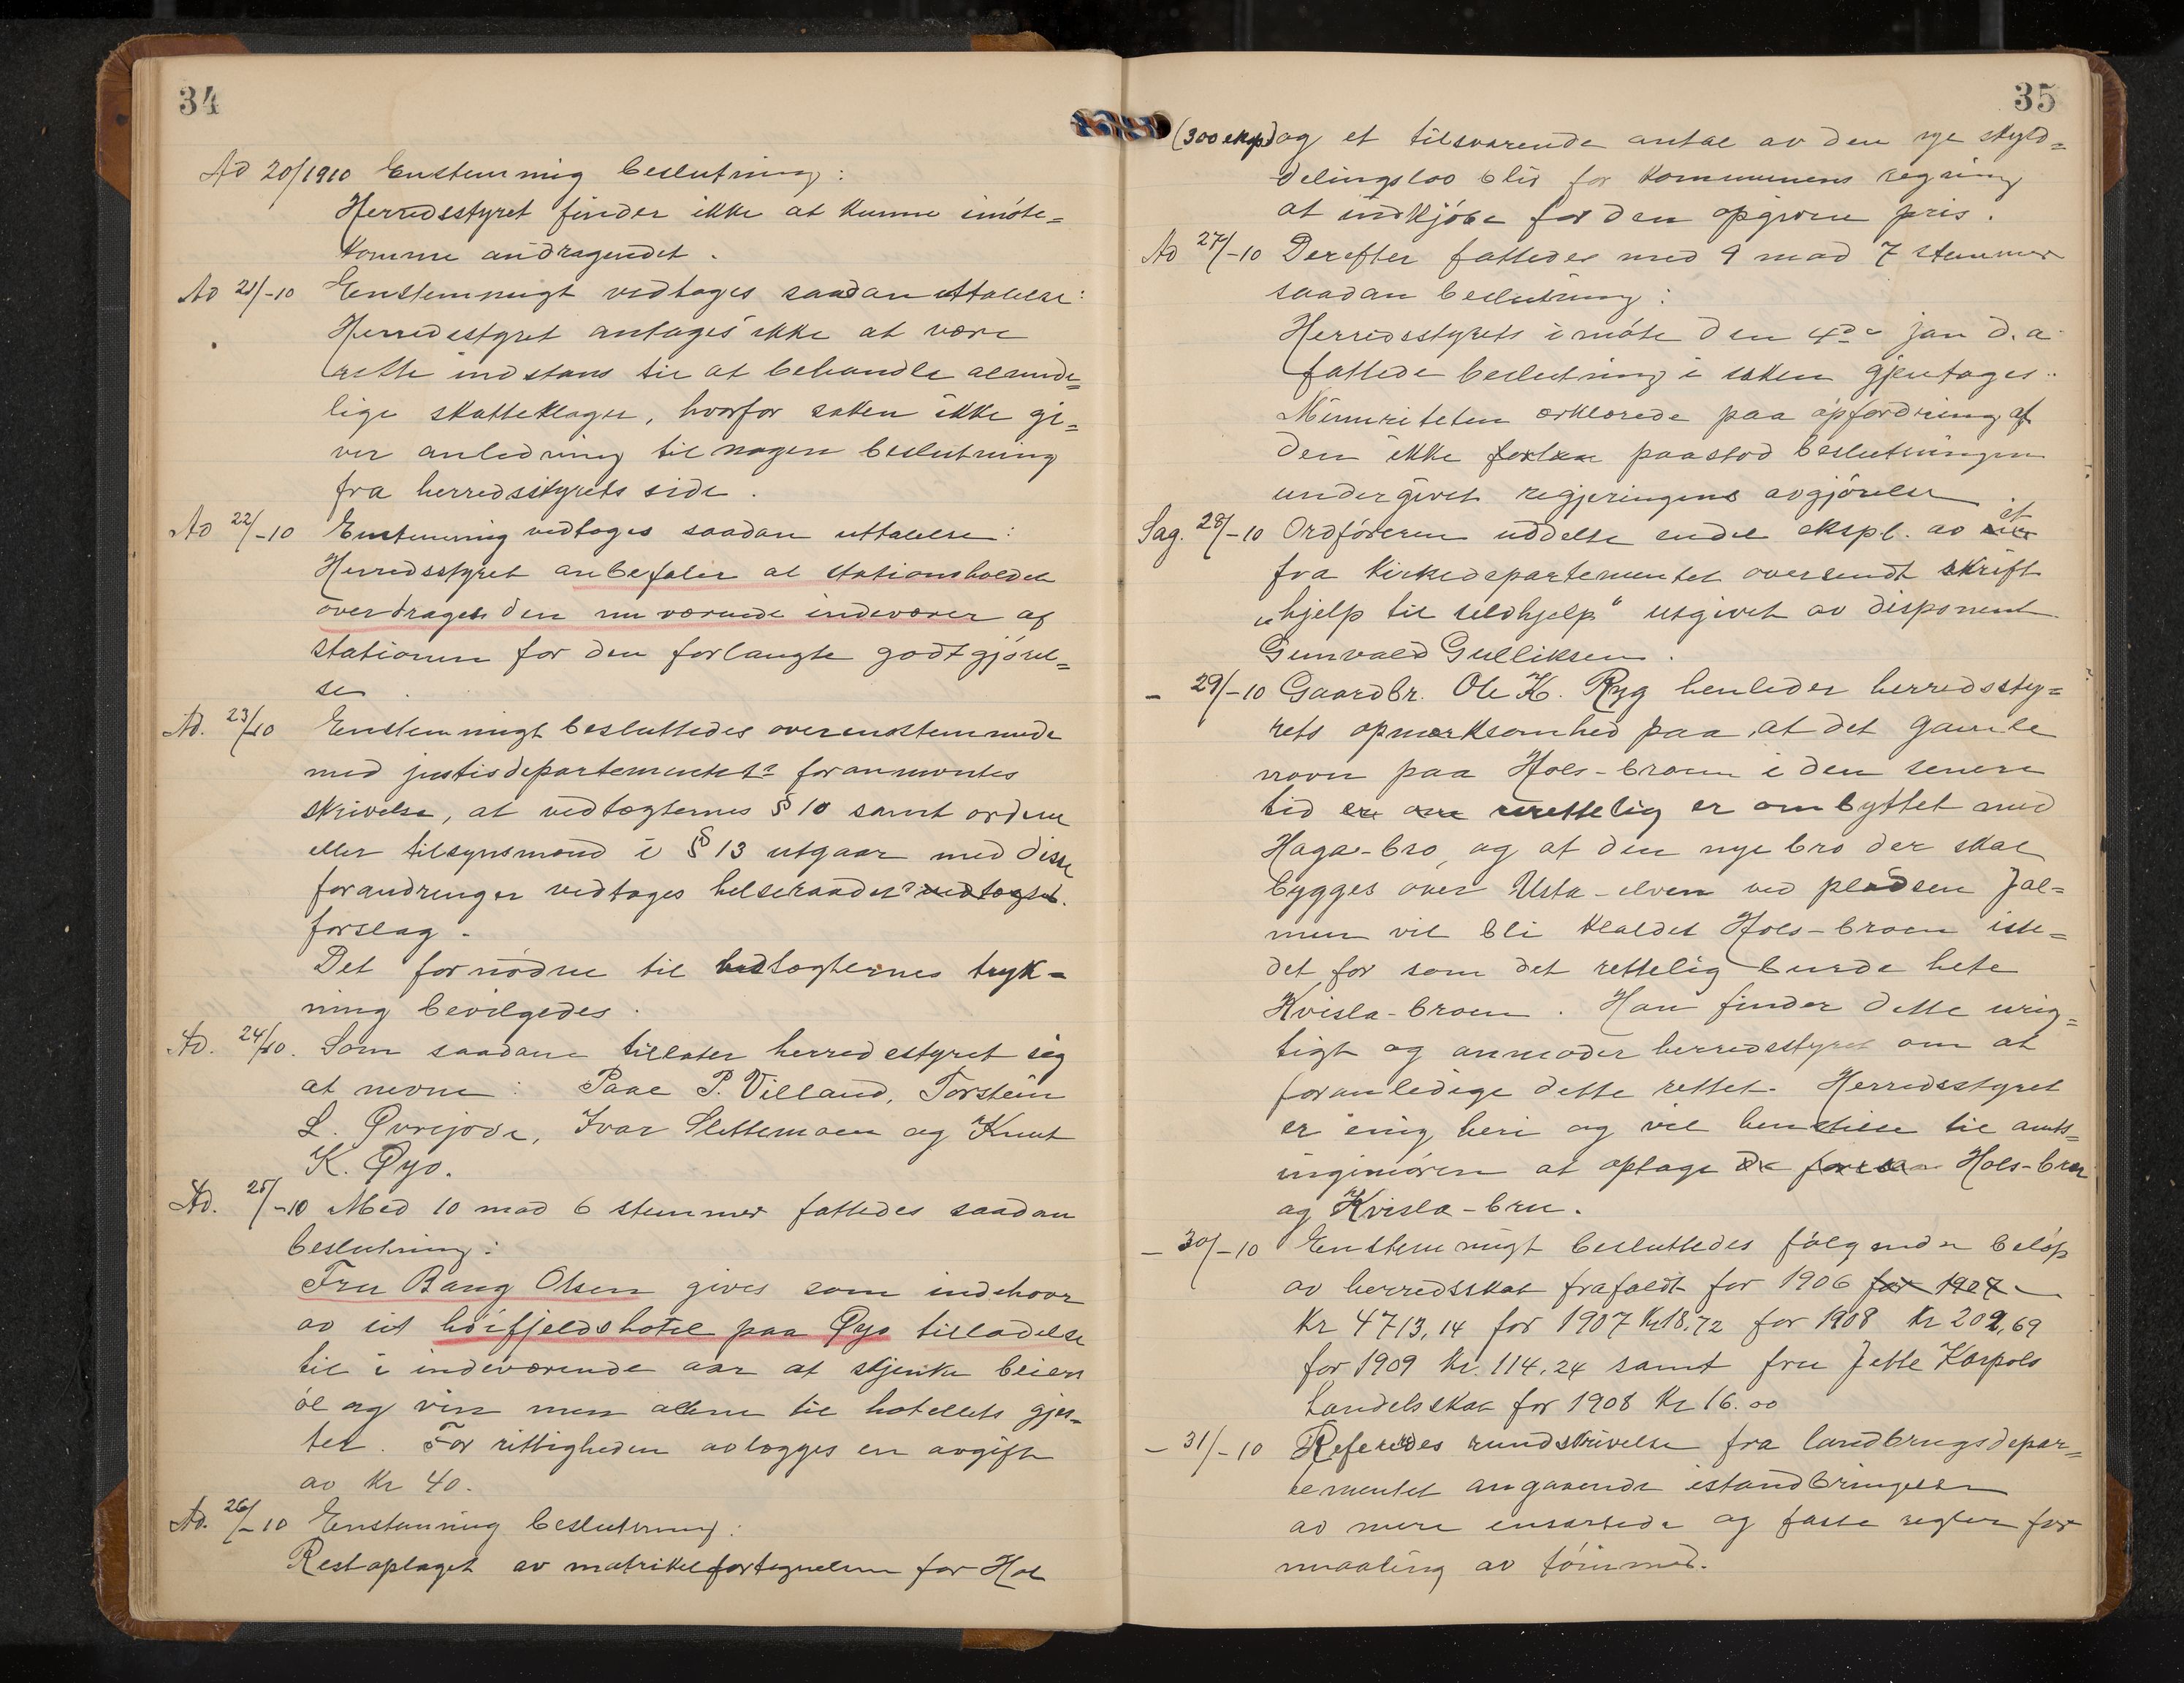 34
Ad 20/1910 Enstemmig beslutning:
Herredsstyret finder ikke at kunne imøte=
komme andragendet.
Ad 21/-10 Enstemmigt vedtages saadan uttalelse:
Herredsstyret antages ikke at være
rette indstans til at behandle alminde=
lige skatteklager, hvorfor saken ikke gi=
ver anledning til nogen beslutning
fra herredsstyrets side.
Ad 22/-10 Enstemmig vedtages saadan uttalelse:
Herredsstyret anbefaler at stationsholdet
overdrages den nuværende indevaarer af
stationen for den forlangte godtgjørel=
se.
Ad. 23/10 Enstemmigt besluttedes overensstemmende
med justisdepartementets foranmeldte
skrivelse, at vedtægternes § 10 samt ordene
eller tilsynsmænd i § 13 utgaar med disse
forandringer vedtages helseraadets vedtægts.
forslag.
Det fornødne til vedtægternes tryk=
ning bevilgedes.
Ad. 24/10. Som saadane tillater herredsstyret sig
at nevne: Paal P. Villand, Torstein
L. Øvrejorde, Ivar Slettemoen og Knut
K. Øyo.
Ad. 25/-10 Med 10 mod 6 stemmer fattedes saadan
beslutning:
Fru Bang Olsen gives som indehaver
av sit høifjeldshotel paa Øyo tilladelse
til i indeværende aar at skjenke beiers
øl og vin men alene til hotellets gjes=
ter. For rettigheden avlægges en avgift
av Kr 40.
Ad. 26/-10 Enstemmig beslutning:
Restoplaget av matrikelfortegnelsen for Hol
35
(300 eksp) og et tilsvarende antal av den nye skyld=
delingslov blir for kommunens regning
at indkjøbe for den opgivne pris.
Ad 27/-10 Derefter fattedes med 9 mod 7 stemmer
saadan beslutning:
Herredsstyrets i møte den 4de jan d.a.
fattede beslutning i saken gjentages.
Minoriteten erklærede paa opfordring af
den ikke paastod beslutningen
undergivet regjeringens avgjørelse
Sag. 28/-10 Ordføreren uddelte endel ekspl. av et
fra kirkedepartementet oversendt skrift
"hjelp til selvhjelp" utgivet av disponent
Gunvald Gulliksen.
- 29/-10 Gaardbr. Ole K. Ryg henleder herredssty=
rets opmerksomhed paa, at det gamle
navn paa Hols-broen i den senere
tid urettelig er ombyttet med
Haga-bro, og at den nye bro der skal
bygges over Usta-elven ved pladsen Jal=
men vil bli kaldet Hols-broen iste=
det for som det rettelig burde hete
Kvisla-broen. Han finder dette urig=
tigt og anmoder herredsstyret om at
foranledige dette rettet. Herredsstyret
er enig heri og vil henstille til amts=
ingeniøren at optage Hols-bru
og Kvisla-bru.
- 30/-10 Enstemmigt besluttedes følgende beløp
av herredsskat frafaldt for 1906 for 1907
Kr 4713,14 for 1907 Kr 18,72 for 1908 Kr 202,69
for 1909 Kr. 114,24 samt fru Jette Karpols
handelsskat for 1908 Kr 16.00
- 31/-10 Refereredes rundskrivelse fra landbrugsdepar=
tementet angaaende istandbringelsen
av mere ensartede og faste regler for
maaling av tømmer.